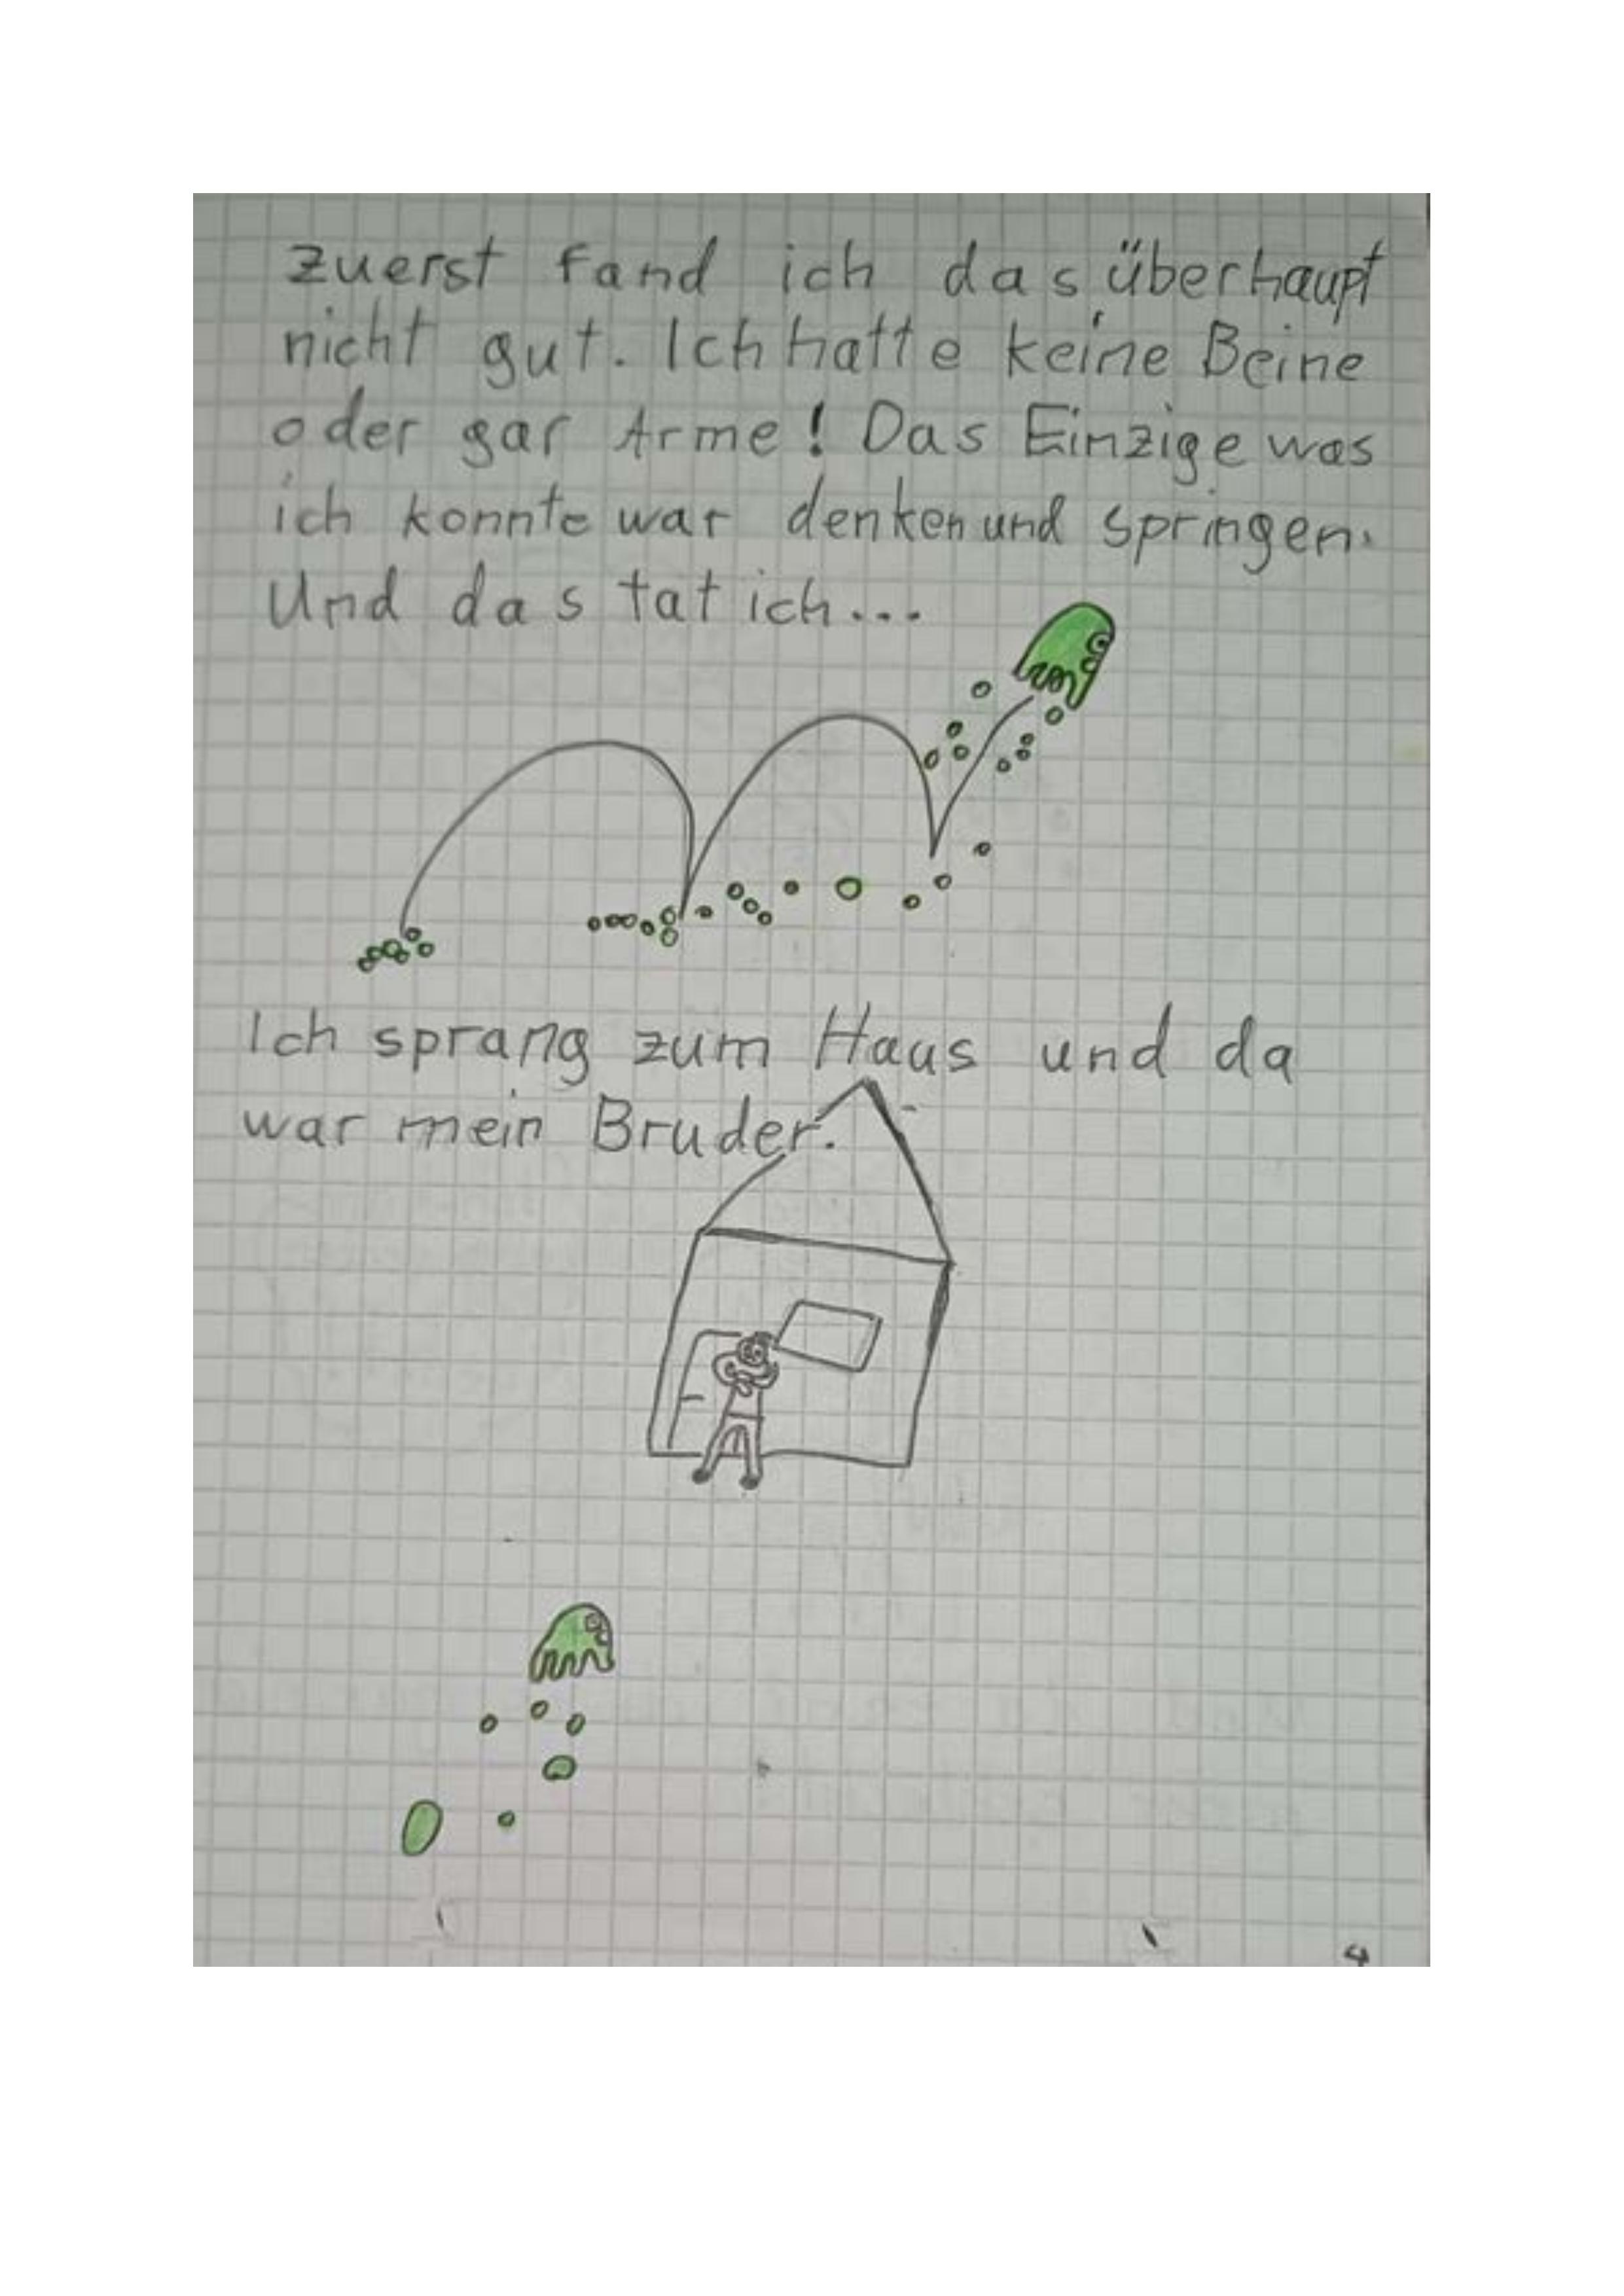 zuerst fand ich das überhaupt
nicht gut. Ich hatte keine Beine
oder gar Arme! Das Einzige was
ich konnte war denken und springen.
Und das tat ich...
Ich sprang zum Haus und da
war mein Bruder.
4